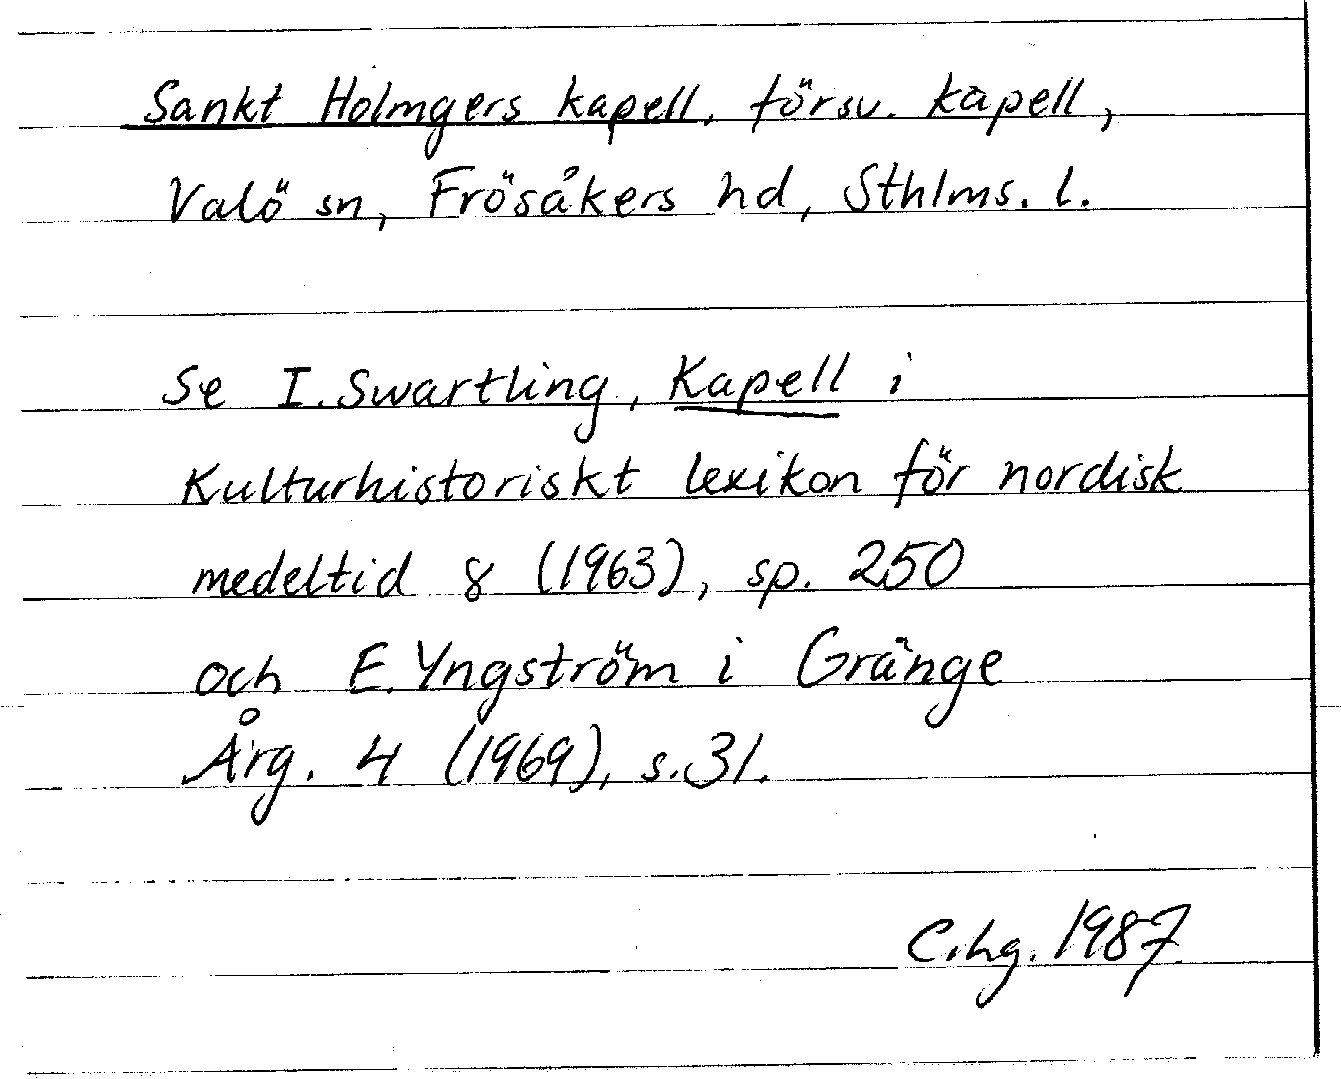 Sankt Holmgers kapell, försv. kapell,
Valö sn, Frösåkers hd, Sthlms. l.
Se I. Swartling, Kapell i
Kulturhistoriskt lexikon för nordisk
medeltid 8 (1963), sp. 250
och E. Yngström i Gränge
Årg. 4 (1969), s. 31.
C.hg. 1987